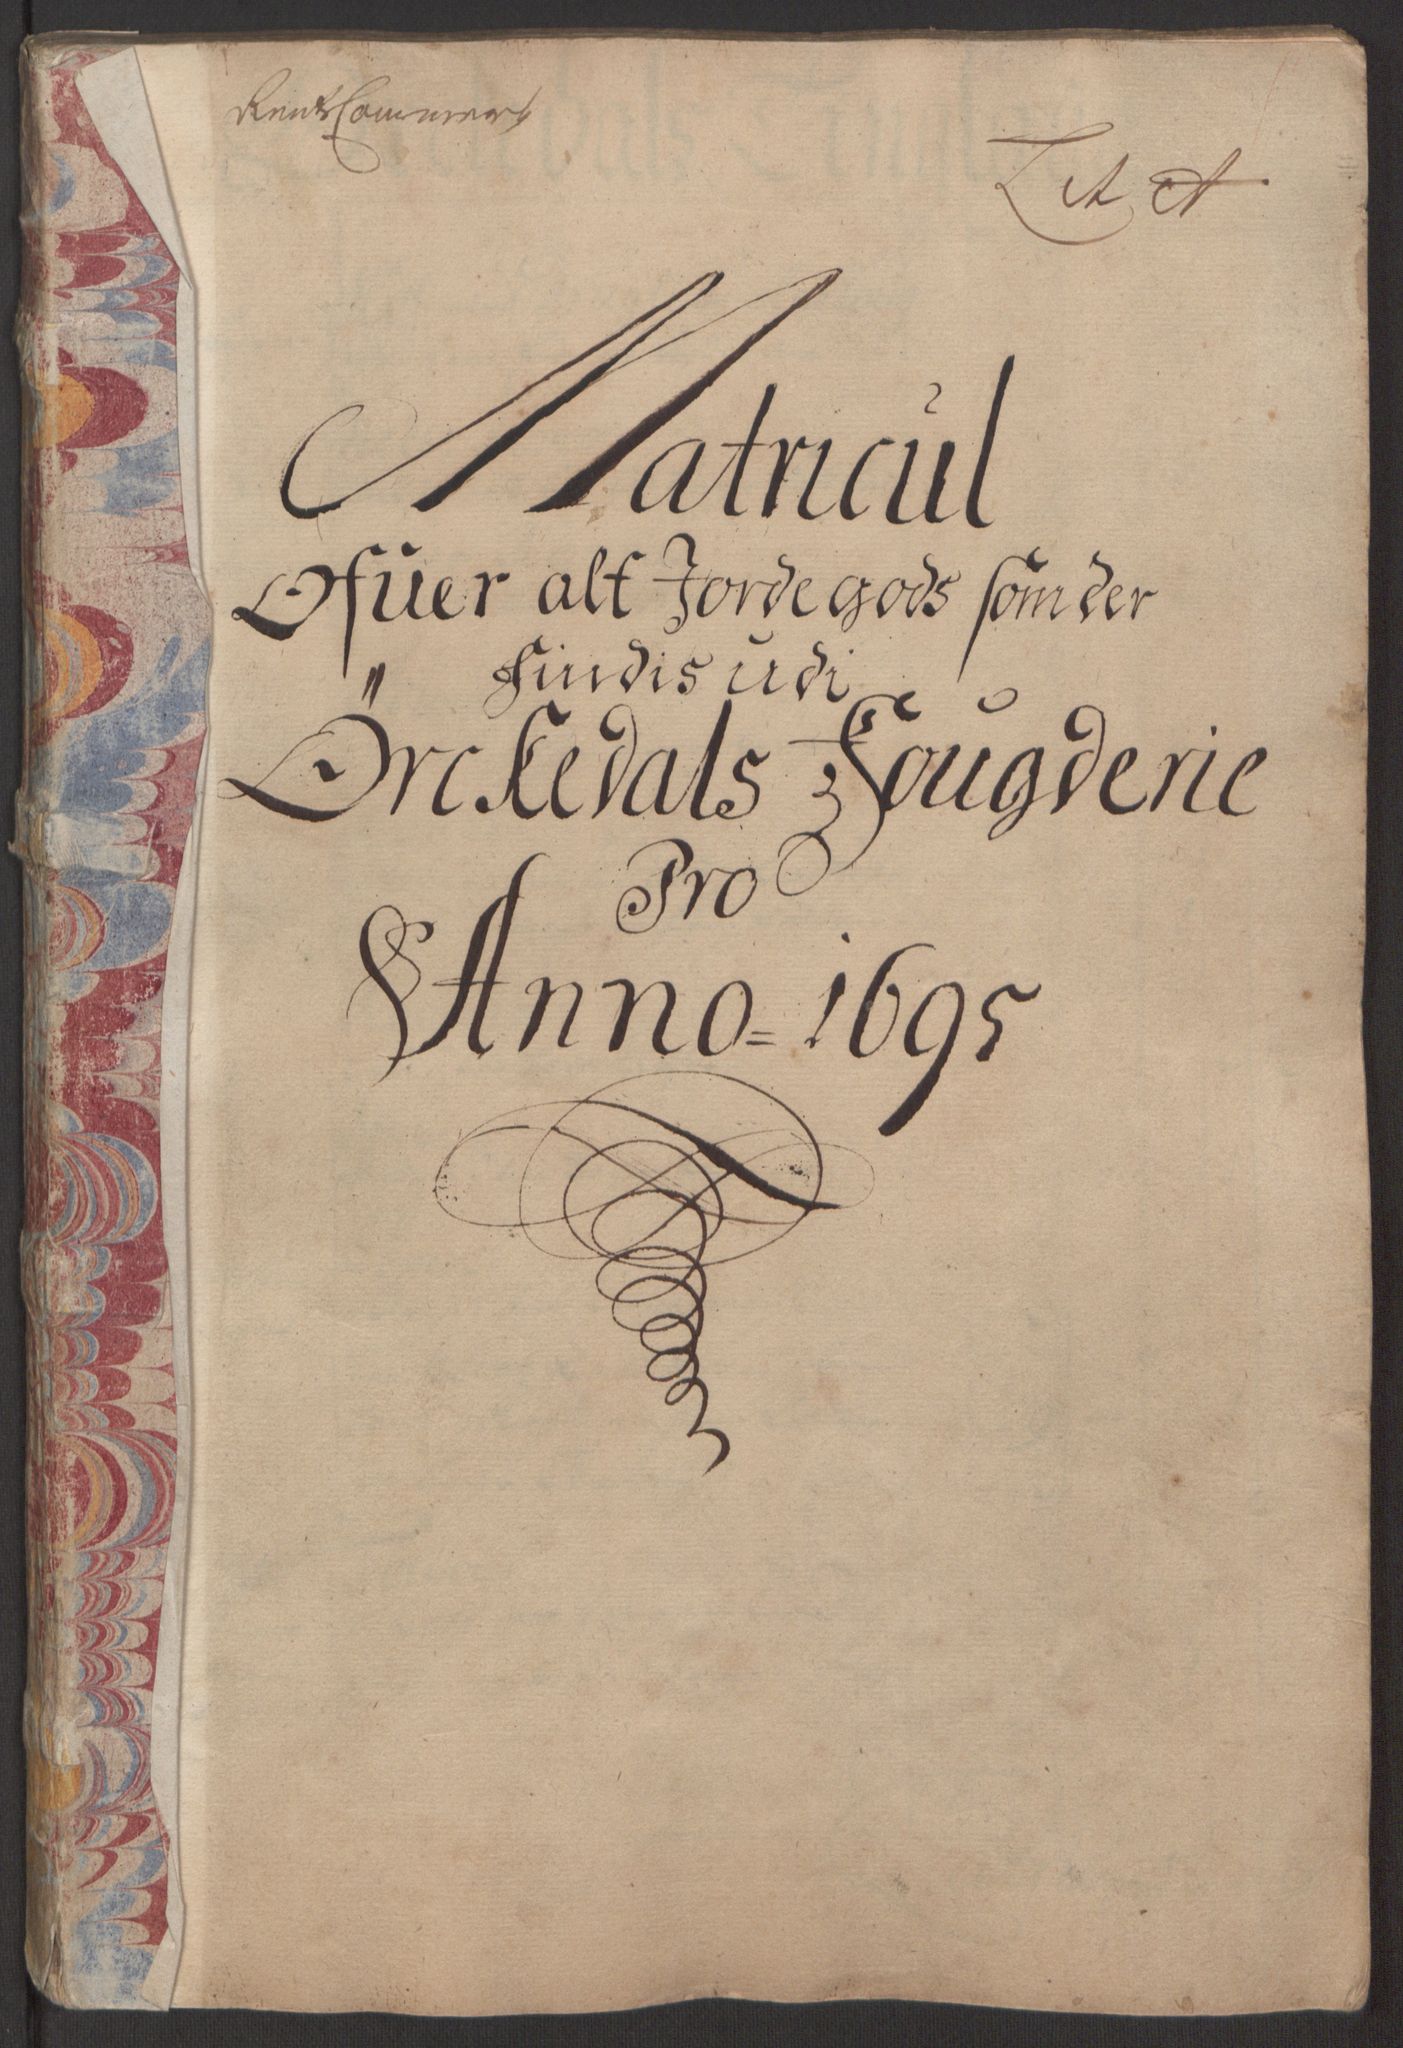 Rente Cammers
Lit A
Matricul
Ofuer alt Jordegods som der
findis udi
Örckedals Fougderie
Pro
Anno = 1695